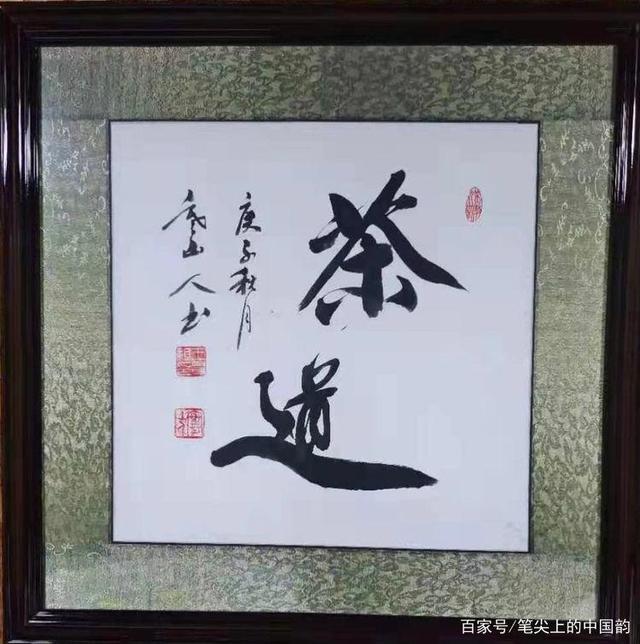 茶道
庚子秋月
山人书
百家号/笔尖上的中国韵